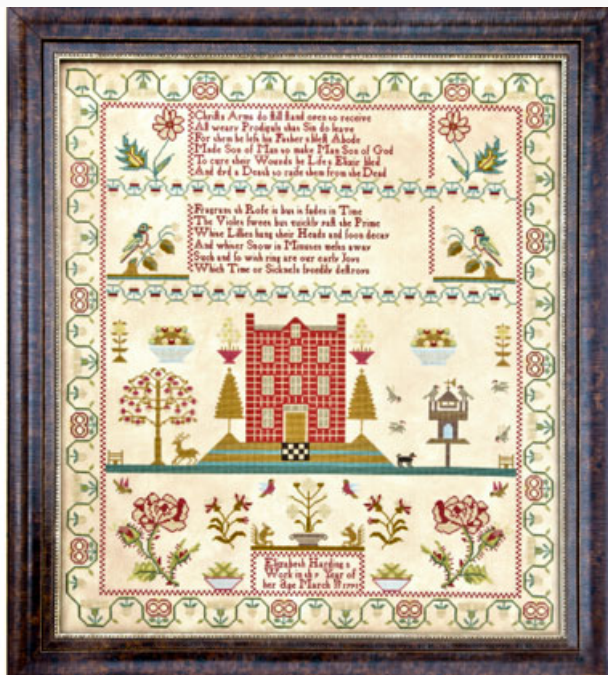 Christs Arms do still stand open to receive
All weary Prodigals that Sin do leave
For them he left his Fathers blest Abode
Made Son of Man to make Man Son of God
To cure their Wounds he Lifes Elixir bled
And dyd a Death to raise them from the Dead
Fragrant th Rose is but it fades in Time
The Violet sweet but quickly past the Prime
White Lillies hang their Heads and soon decay
And whiter Snow in Minutes melts away
Such and so with ring are our early Joys
Which Time or Sickness speedily destroys
Elizabeth Harding s
Work in the Year of
her Age March